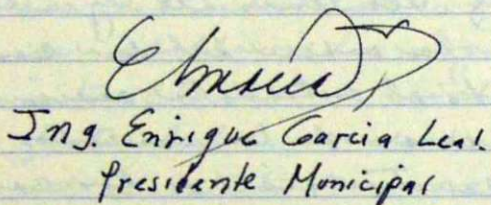 Ing. Enrique Garcia Leal.
Presidente Municipal